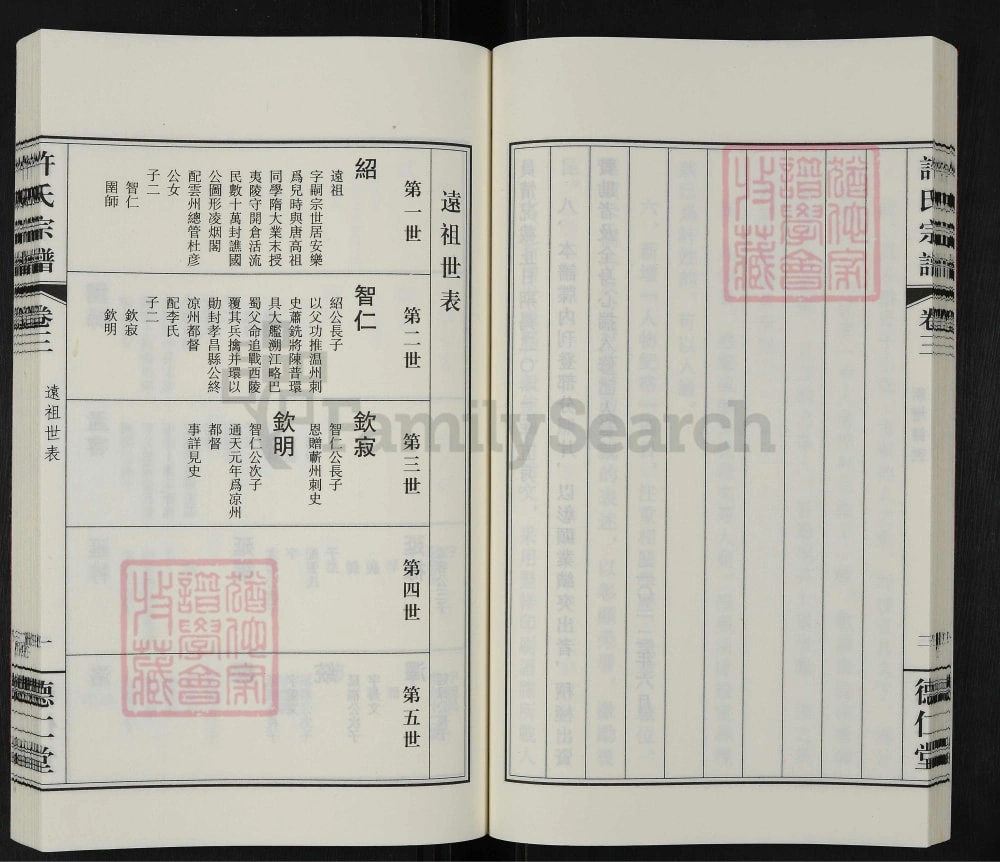 許氏宗譜
卷三
二
德仁堂
遠祖世表
第一世
紹
遠祖
字嗣宗世居安樂
爲兒時與唐高祖
同學隋大業末授
夷陵守開倉活流
民數十萬封譙國
公圖形凌烟閣
配雲州總管杜彥
公女
子二
智仁
圉師
第二世
智仁
紹公長子
以父功推温州刺
史蕭銑將陳普環
具大艦溯江略巴
蜀父命追戰西陵
覆其兵擒并環以
勛封孝昌縣公終
凉州都督
配李氏
子二
欽寂
欽明
第三世
欽寂
智仁公長子
恩贈蘄州刺史
欽明
智仁公次子
通天元年爲凉州
都督
事詳見史
第四世
第五世
許氏宗譜
卷三
遠祖世表
一
德仁堂
譜學會
收藏
譜學會
收藏
FamilySearch